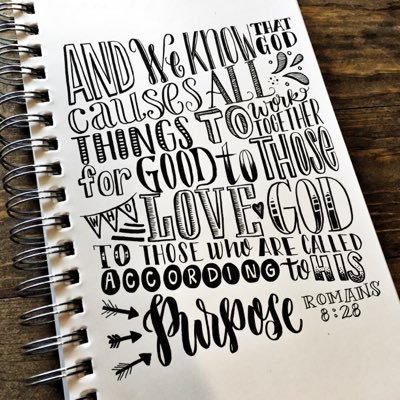 AND We KNOW THAT GOD
causes ALL
THINGS TO work TOGETHER
for GOOD to THOSE
WHO LOVE GOD
TO THOSE WHO ARE CALLED
ACCORDING to HIS
Purpose ROMANS 8:28